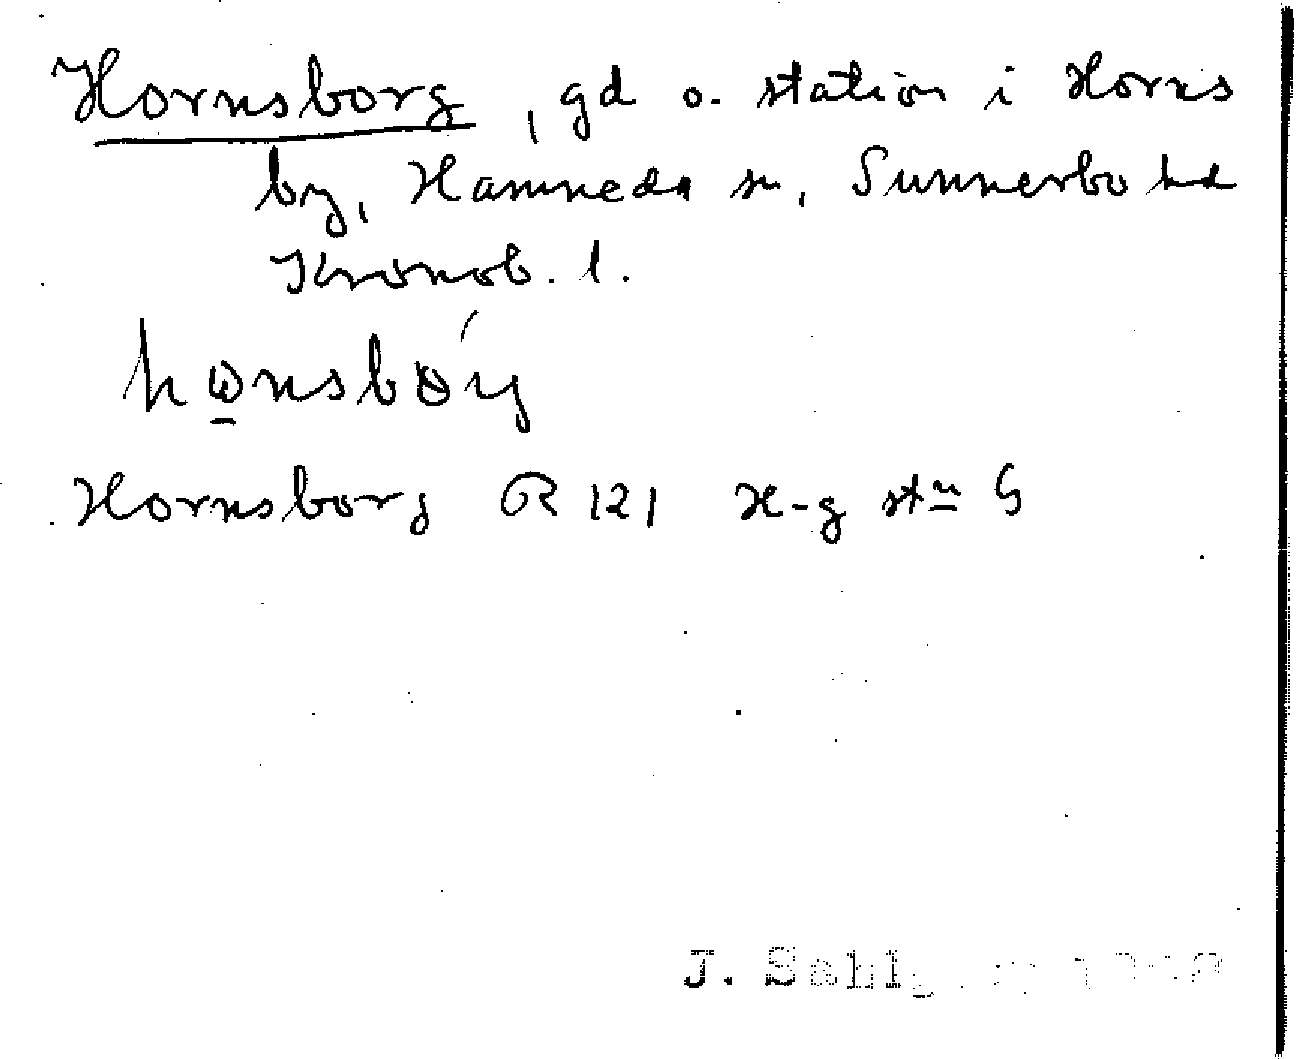 Hornsborg, gd o. station i Horns
by, Hamneda sn, Sunnerbo hd
Kronob. l.
Hornsborg R 121 H-g stn G
J.